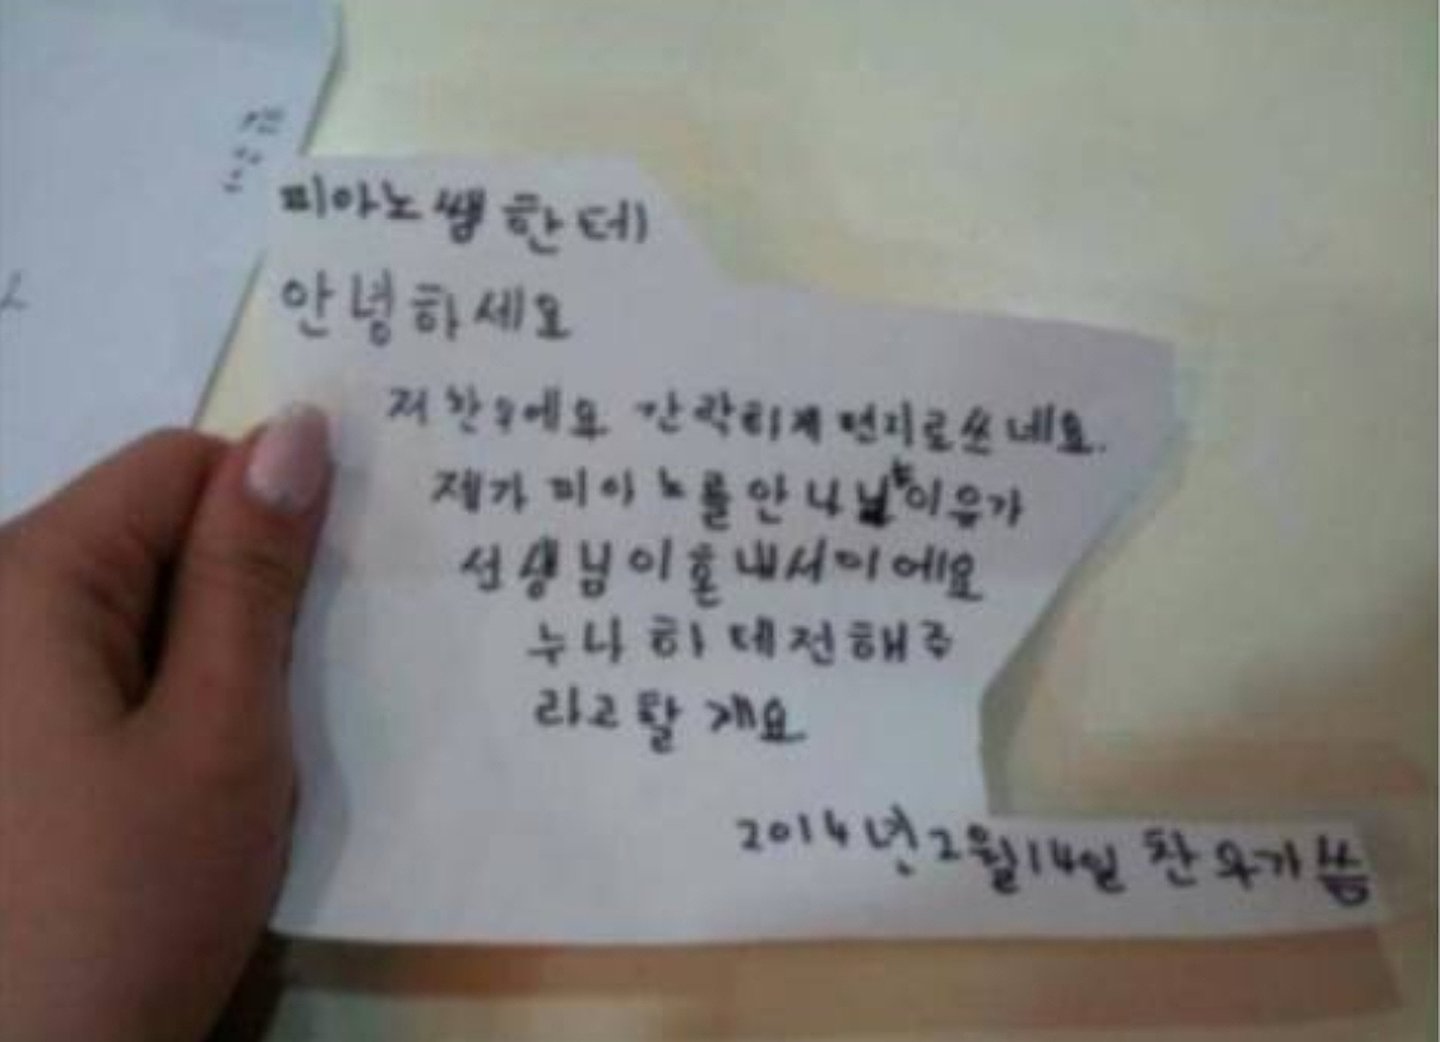 피아노 쌤한테
안녕하세요
저 찬우에요 간략히게 편지로 쓰네요.
제가 피아노를 안 다닌 이유가
선생님이 혼내서이에요
누나 하테 전해주
라고 할게요
2014년 2월 14일 찬우가 씀